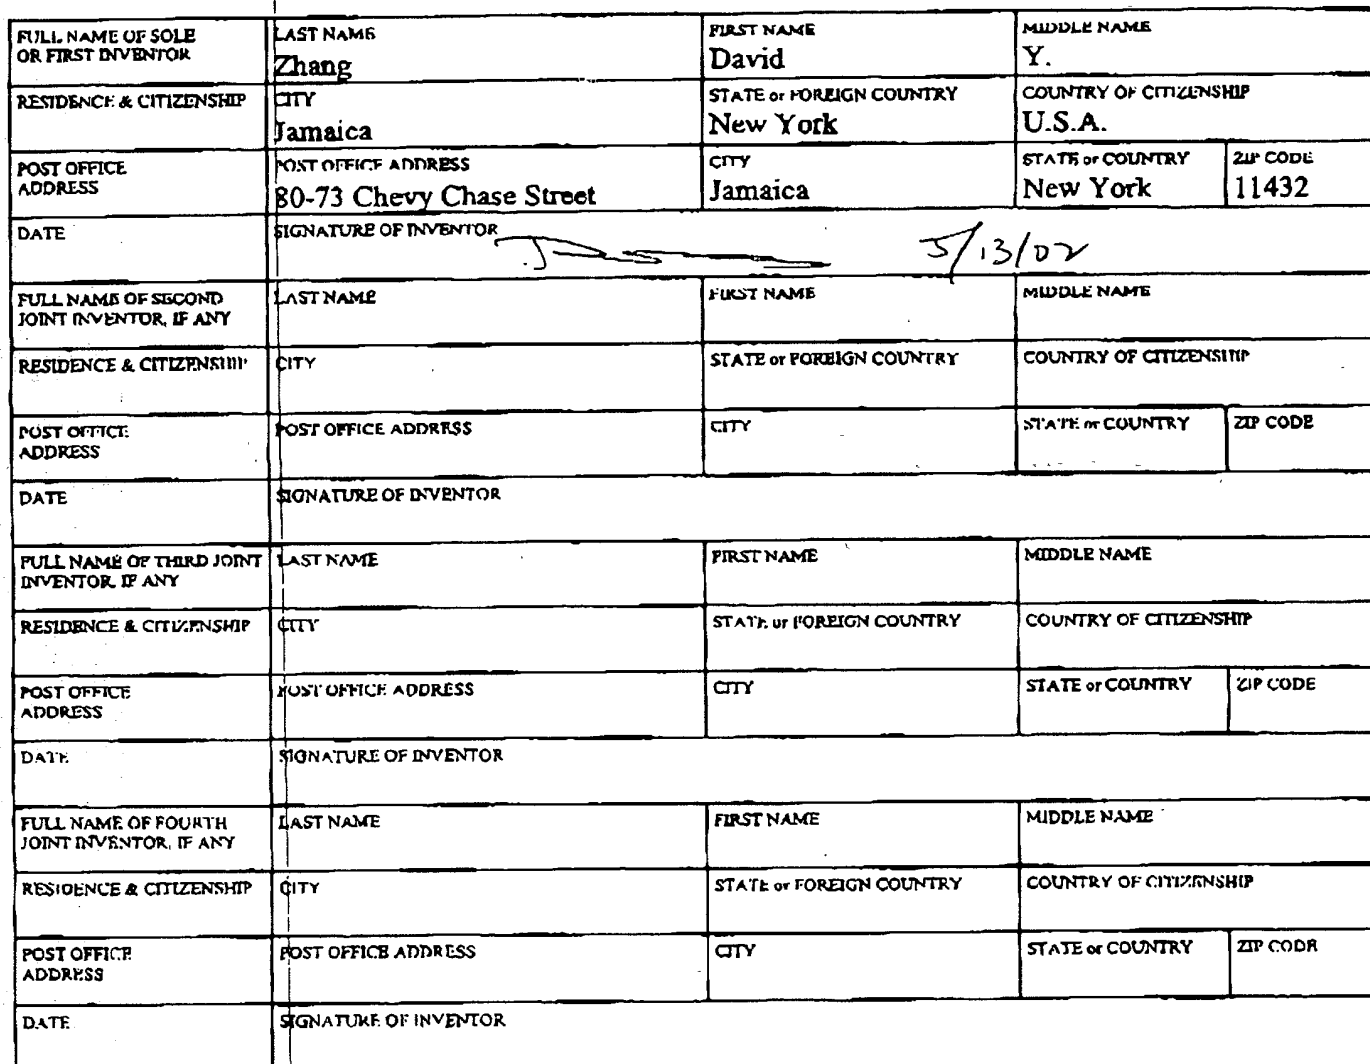 FULL NAME OF SOLE OR FIRST INVENTOR LAST NAME Zhang FIRST NAME David MIDDLE NAME Y.
RESIDENCE & CITIZENSHIP CITY Jamaica STATE or FOREIGN COUNTRY New York COUNTRY OF CITIZENSHIP U.S.A.
POST OFFICE ADDRESS POST OFFICE ADDRESS 80-73 Chevy Chase Street CITY Jamaica STATE or COUNTRY New York ZIP CODE 11432
DATE SIGNATURE OF INVENTOR 5/13/02
FULL NAME OF SECOND JOINT INVENTOR, IF ANY LAST NAME FIRST NAME MIDDLE NAME
RESIDENCE & CITIZENSHIP CITY STATE or FOREIGN COUNTRY COUNTRY OF CITIZENSHIP
POST OFFICE ADDRESS POST OFFICE ADDRESS CITY STATE or COUNTRY ZIP CODE
DATE SIGNATURE OF INVENTOR
FULL NAME OF THIRD JOINT INVENTOR, IF ANY LAST NAME FIRST NAME MIDDLE NAME
RESIDENCE & CITIZENSHIP CITY STATE or FOREIGN COUNTRY COUNTRY OF CITIZENSHIP
POST OFFICE ADDRESS POST OFFICE ADDRESS CITY STATE or COUNTRY ZIP CODE
DATE SIGNATURE OF INVENTOR
FULL NAME OF FOURTH JOINT INVENTOR, IF ANY LAST NAME FIRST NAME MIDDLE NAME
RESIDENCE & CITIZENSHIP CITY STATE or FOREIGN COUNTRY COUNTRY OF CITIZENSHIP
POST OFFICE ADDRESS POST OFFICE ADDRESS CITY STATE or COUNTRY ZIP CODE
DATE SIGNATURE OF INVENTOR